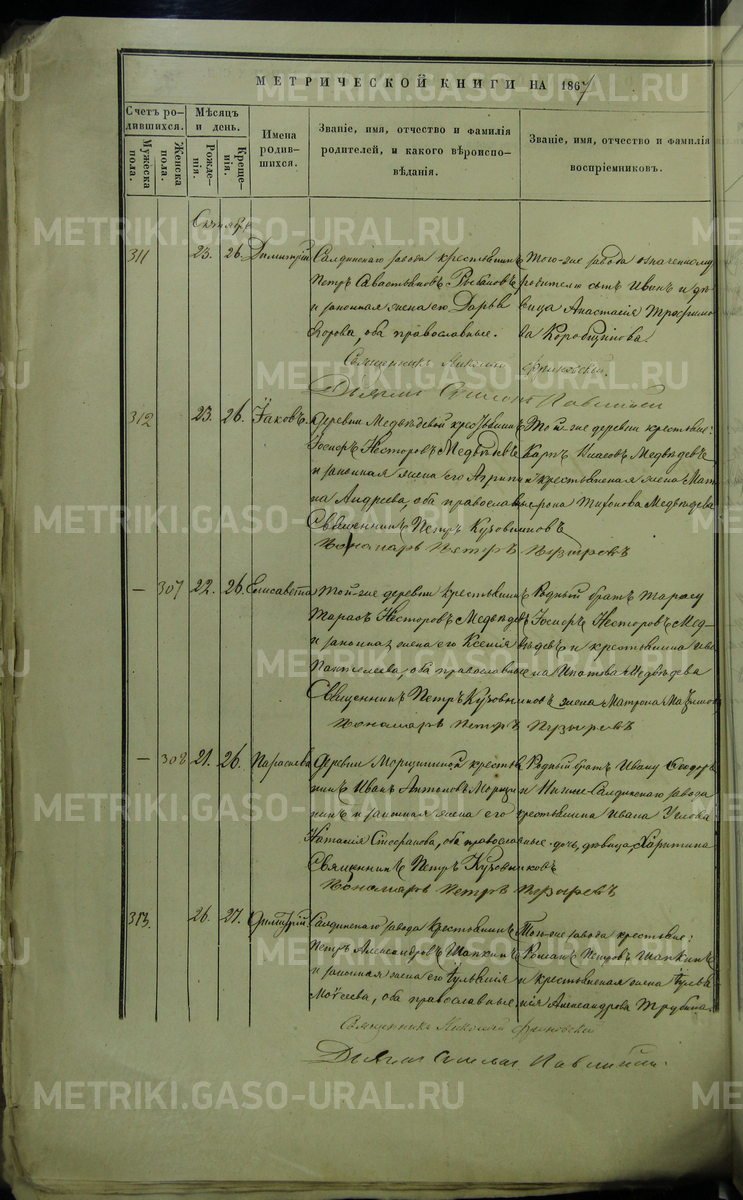 МЕТРИЧЕСКОЙ КНИГИ НА 1867
Счетъ ро-
дившихся.
Мѣсяцъ
и день.
Мужеска
пола.
Женска
пола.
Рожде-
нія.
Креще-
нія.
Имена
родив-
шихся.
Званіе, имя, отчество и фамилія
родителей, и какого вѣроиспо-
вѣданія.
Званіе, имя, отчество и фамилія
воспріемниковъ.
Октября
311 23. 26. Димитрій
Салдинскаго завода крестьянинъ
Петръ Савастьяновъ Рыбаковъ
и законная жена его Дарья
Егорова, оба православные.
Того-же завода означенному
родителю сынъ Иванъ и дѣ
вица Анастасія Трофимо
ва Коробщикова.
Священникъ Николай
Дьячекъ
312 23. 26. Іаковъ.
Деревни Медвѣдевой крестьянинъ
Іосифъ Несторовъ Медвѣдевъ
и законная жена его Агрипи
на Андреева, оба православные
Той-же деревни крестьяне:
Карпъ Власовъ Медвѣдевъ
и крестьянская жена Мат
рона Тихонова Медвѣдева
Священникъ Петръ Кузовниковъ
Пономарь Петръ Пузыревъ
— 307 22. 26. Елисавета
Той-же деревни крестьянинъ
Тарасъ Несторовъ Медвѣдевъ
и законная жена его Ксенія
Пантелеева, оба православные
Родный братъ Тарасу
Іосифъ Несторовъ Мед-
вѣдевъ и крестьянина Ива
на Ипатова Медвѣдева
жена Матрона
Священникъ Петръ Кузовниковъ
Пономарь Петръ Пузыревъ
— 308 21. 26. Параскева
Деревни крестья
нинъ Иванъ
и законная жена его
Наталія Стефанова, оба православные
Родный братъ Ивану Ѳеодоръ
и Нижне-Салдинскаго завода
крестьянина Ивана
дочь, дѣвица, Харитина
Священникъ Петръ Кузовниковъ
Пономарь Петръ Пузыревъ
313. 26. 27. Димитрій
Салдинскаго завода крестьянинъ
Петръ Александровъ Шапкинъ
и законная жена его Іульянія
Моѵсеева, оба православные
Того-же завода крестьяне:
Романъ Петровъ Шапкинъ
и крестьянская жена Іулья
нія Александрова Трубина.
Священникъ Николай
Дьячекъ
METRIKI.GASO-URAL.RU